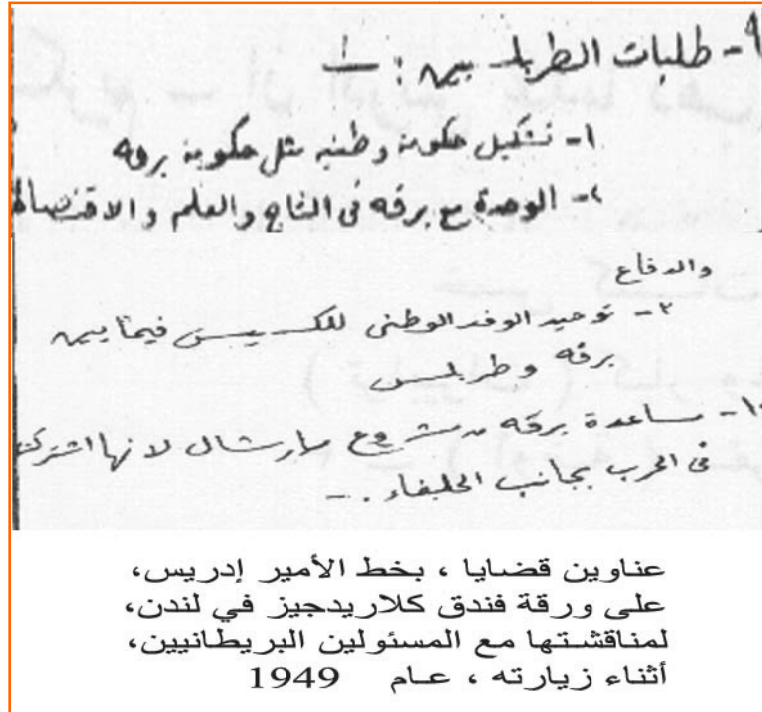 ٩- طلبات الطرابلسيين :-
١- تشكيل حكومة وطنيه مثل حكومة برقه
٢- الوحدة مع برقه فى التاج والعلم والاقتصاد
والدفاع
٣- توحيد الوفد الوطنى للكسس فيما بين
برقه وطرابلس
١٠- مساعدة برقه من مشروع مارشال لانها اشتركت
فى الحرب بجانب الحلفاء .-
عناوين قضايا ، بخط الأمير إدريس،
على ورقة فندق كلاريدجيز في لندن،
لمناقشتها مع المسئولين البريطانيين،
أثناء زيارته ، عام 1949